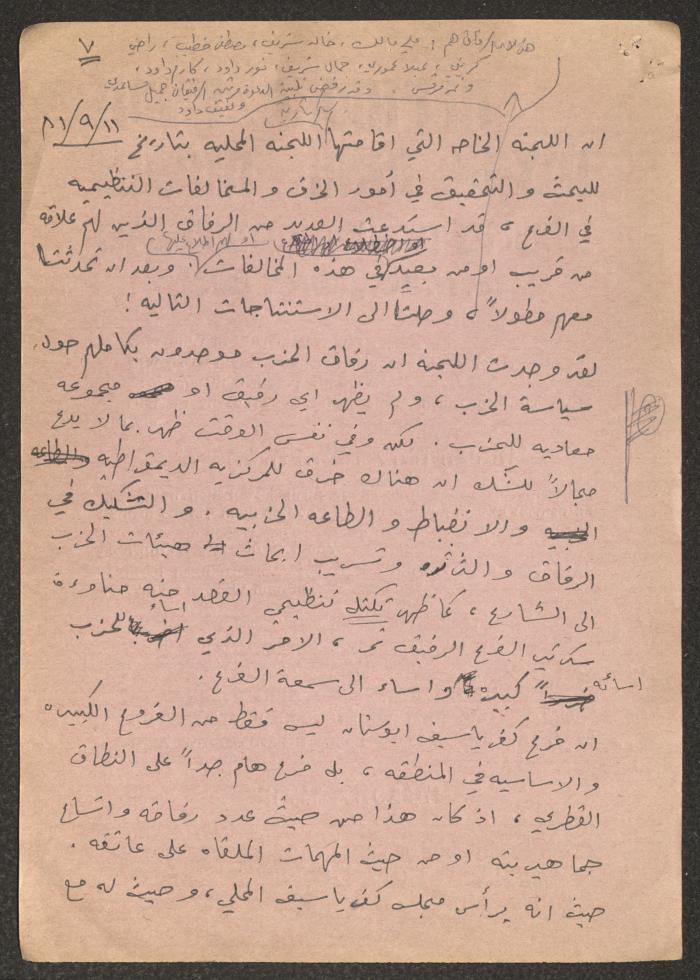 ٧
هؤلاء الرفاق هم : علي مالك، خالد شريف، مصطفى خطيب، راضي
كريني، عبلا خوري، جمال شريف، نور داود، كارم داود،
ونمر مرقس. وقد رفض تلبية الدعوة من الرفقان جميل
وتفيق داود
ان اللجنه الخاصه التي اقامتها اللجنه المحليه بتاريخ ٨١/٩/١١
للبحث والتحقيق في أمور الخرق والمخالفات التنظيميه
في الفرع، قد استدعت العديد من الرفاق الذين لهم علاقه
من قريب او من بعيد في هذه المخالفات او لهم اطلاع عليها. وبعد ان تحدثت
معهم مطولاً، وصلت الى الاستنتاجات التاليه!
لقد وجدت اللجنه ان رفاق الحزب موحدون بكاملهم حول
سياسة الحزب، ولم يظهر اي رفيق او مجموعه
معاديه للحزب. لكن وفي نفس الوقت ظهر بما لا يدع
مجالاً للشك ان هناك خرق للمركزيه الديمقراطيه
والانضباط والطاعه الحزبيه. والتشكيك في
الرفاق والثرثره وتسريب ابحاث هيئات الحزب
الى الشارع، كما ظهر تكتل تنظيمي القصد منه مناوءة
سكرتير الفرع الرفيق نمر، الامر الذي اساء للحزب
اسائه كبيره واساء الى سمعة الفرع.
ان فرع كفر ياسيف ابوسنان ليس فقط من الفروع الكبيره
والاساسيه في المنطقه، بل فرع هام جداً على النطاق
القطري، اذ كان هذا من حيث عدد رفاقه واتساع
جماهيريته او من حيث المهمات الملقاه على عاتقه.
حيث انه يرأس مجلس كفر ياسيف المحلي، وحيث له مع